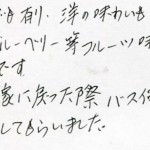 も有り、洋の味わいも
ルーベリー等フルーツ味
です
家に戻った際 バス
してもらいました。